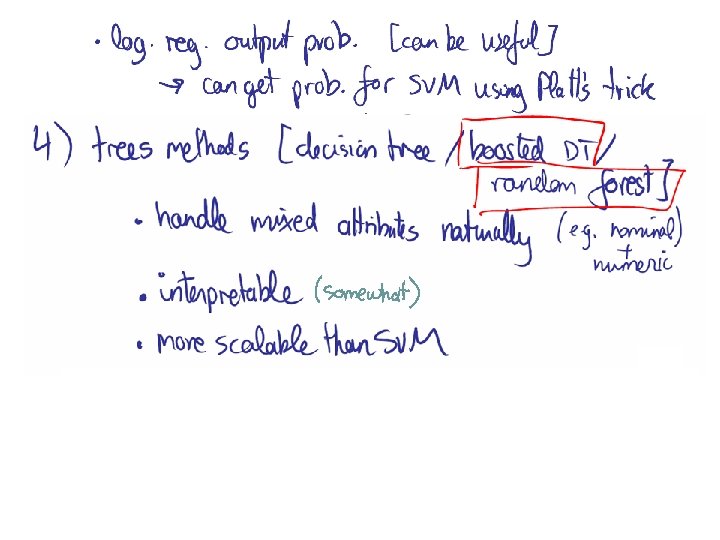 · log. reg. output prob. [can be useful]
→ can get prob. for SVM using Platt's trick
4) trees methods [decision tree / boosted DT /
random forest]
· handle mixed attributes naturally (e.g. nominal
+
numeric)
· interpretable (somewhat)
· more scalable than SVM